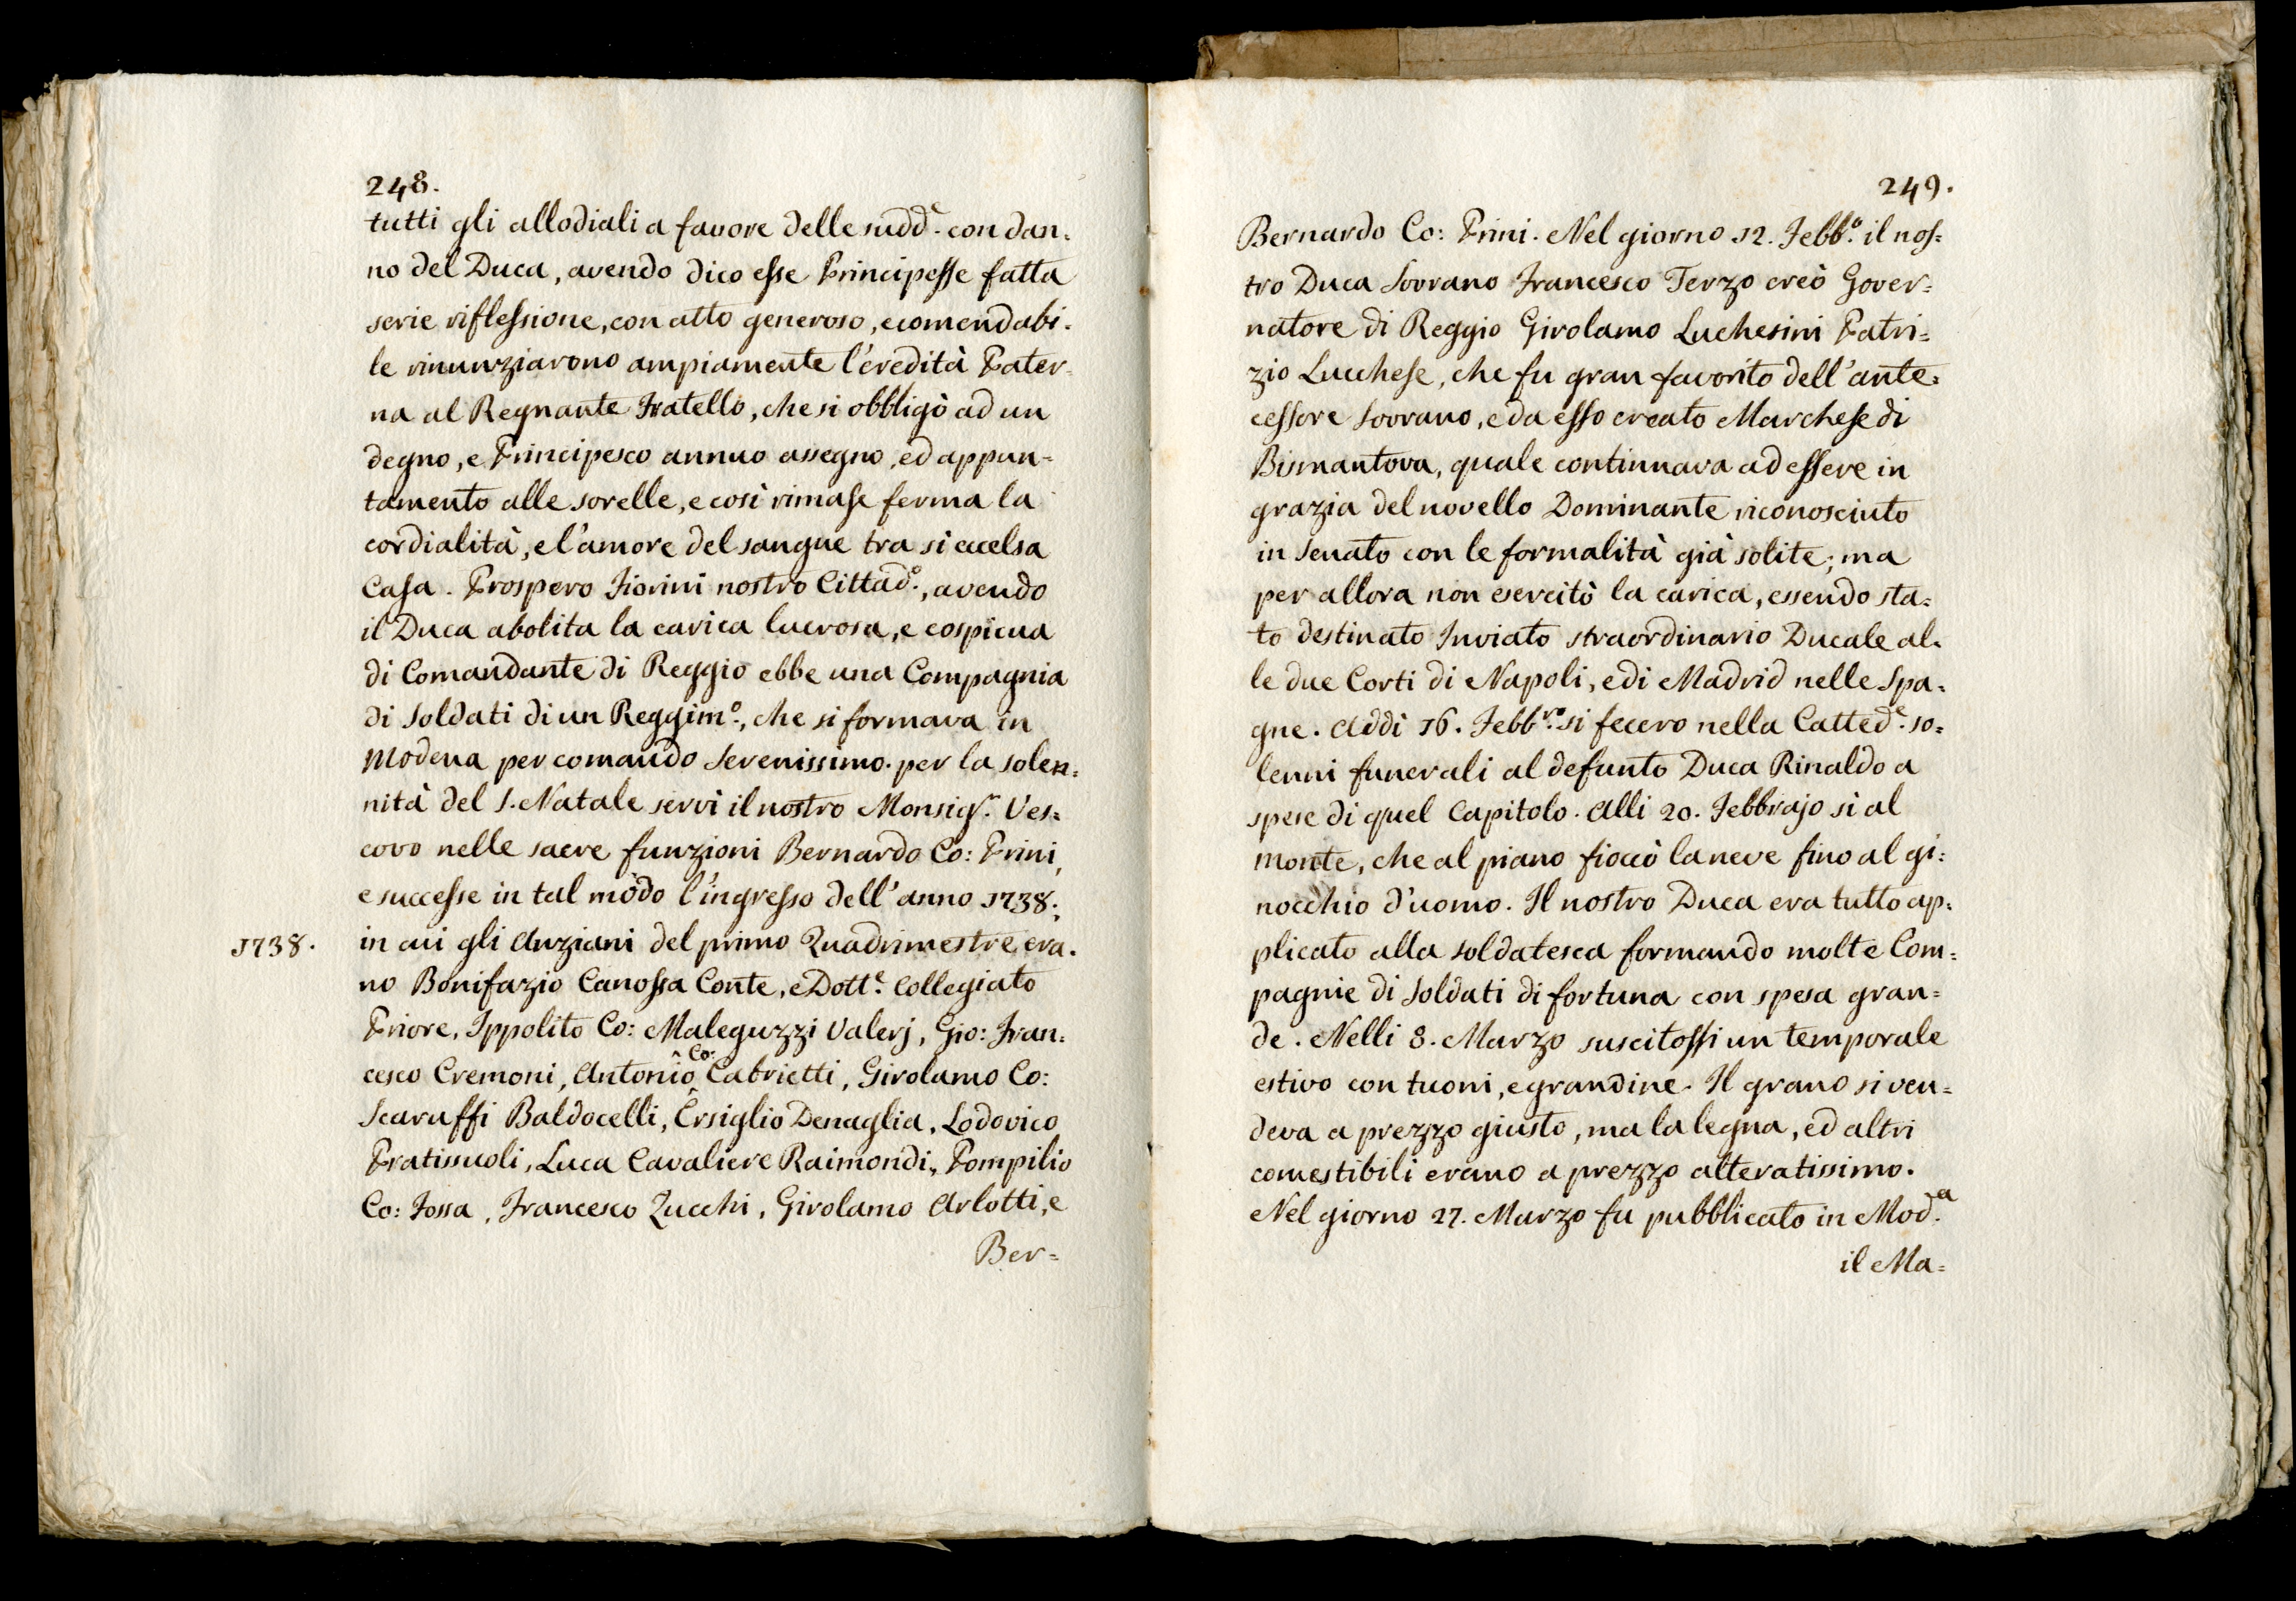 248.
tutti gli allodiali a favore delle sudd.e con dan=
no del Duca, avendo dico esse Principesse fatta
serie riflessione, con atto generoso, e comendabi=
le rinunziarono ampiamente l'eredità Pater=
na al Regnante Fratello, che si obbligò ad un
degno, e Principesco annuo assegno, ed appun=
tamento alle sorelle, e così rimase ferma la
cordialità, e l'amore del sangue tra sì eccelsa
Casa. Prospero Fiorini nostro Cittad.o, avendo
il Duca abolita la carica lucrosa, e cospicua
di Comandante di Reggio ebbe una Compagnia
di Soldati di un Reggim.o, che si formava in
Modena per comando Serenissimo. per la solen=
nità del S. Natale servì il nostro Monsig.r Ves=
covo nelle sacre funzioni Bernardo Co: Prini,
e successe in tal modo l'ingresso dell'anno 1738.;
1738. in cui gli Anziani del primo Quadrimestre era=
no Bonifazio Canossa Conte, e Dott.e Collegiato
Priore, Ippolito Co: Maleguzzi Valerj, Gio: Fran=
cesco Cremoni, Antonio Co: Cabrietti, Girolamo Co:
Scaruffi Baldocelli, Ersiglio Denaglia, Lodovico
Pratissuoli, Luca Cavaliere Raimondi, Pompilio
Co: Fossa, Francesco Zucchi, Girolamo Arlotti, e
Ber=
249.
Bernardo Co: Prini. Nel giorno 12. Febb.o il nos=
tro Duca Sovrano Francesco Terzo creò Gover=
natore di Reggio Girolamo Luchesini Patri=
zio Lucchese, che fu gran favorito dell'ante=
cessore Sovrano, e da esso creato Marchese di
Bismantova, quale continuava ad essere in
grazia del novello Dominante riconosciuto
in Senato con le formalità già solite; ma
per allora non esercitò la carica, essendo sta=
to destinato Inviato straordinario Ducale al=
le due Corti di Napoli, e di Madrid nelle Spa=
gne. Addì 16. Febb.ro si fecero nella Catted.e so=
lenni funerali al defunto Duca Rinaldo a
spese di quel Capitolo. Alli 20. Febbrajo sì al
monte, che al piano fioccò la neve fino al gi=
nocchio d'uomo. Il nostro Duca era tutto ap=
plicato alla soldatesca formando molte Com=
pagnie di Soldati di fortuna con spesa gran=
de. Nelli 8. Marzo suscitossi un temporale
estivo con tuoni, e grandine. Il grano si ven=
deva a prezzo giusto, ma la legna, ed altri
comestibili erano a prezzo alteratissimo.
Nel giorno 27. Marzo fu pubblicato in Mod.a
il Ma=